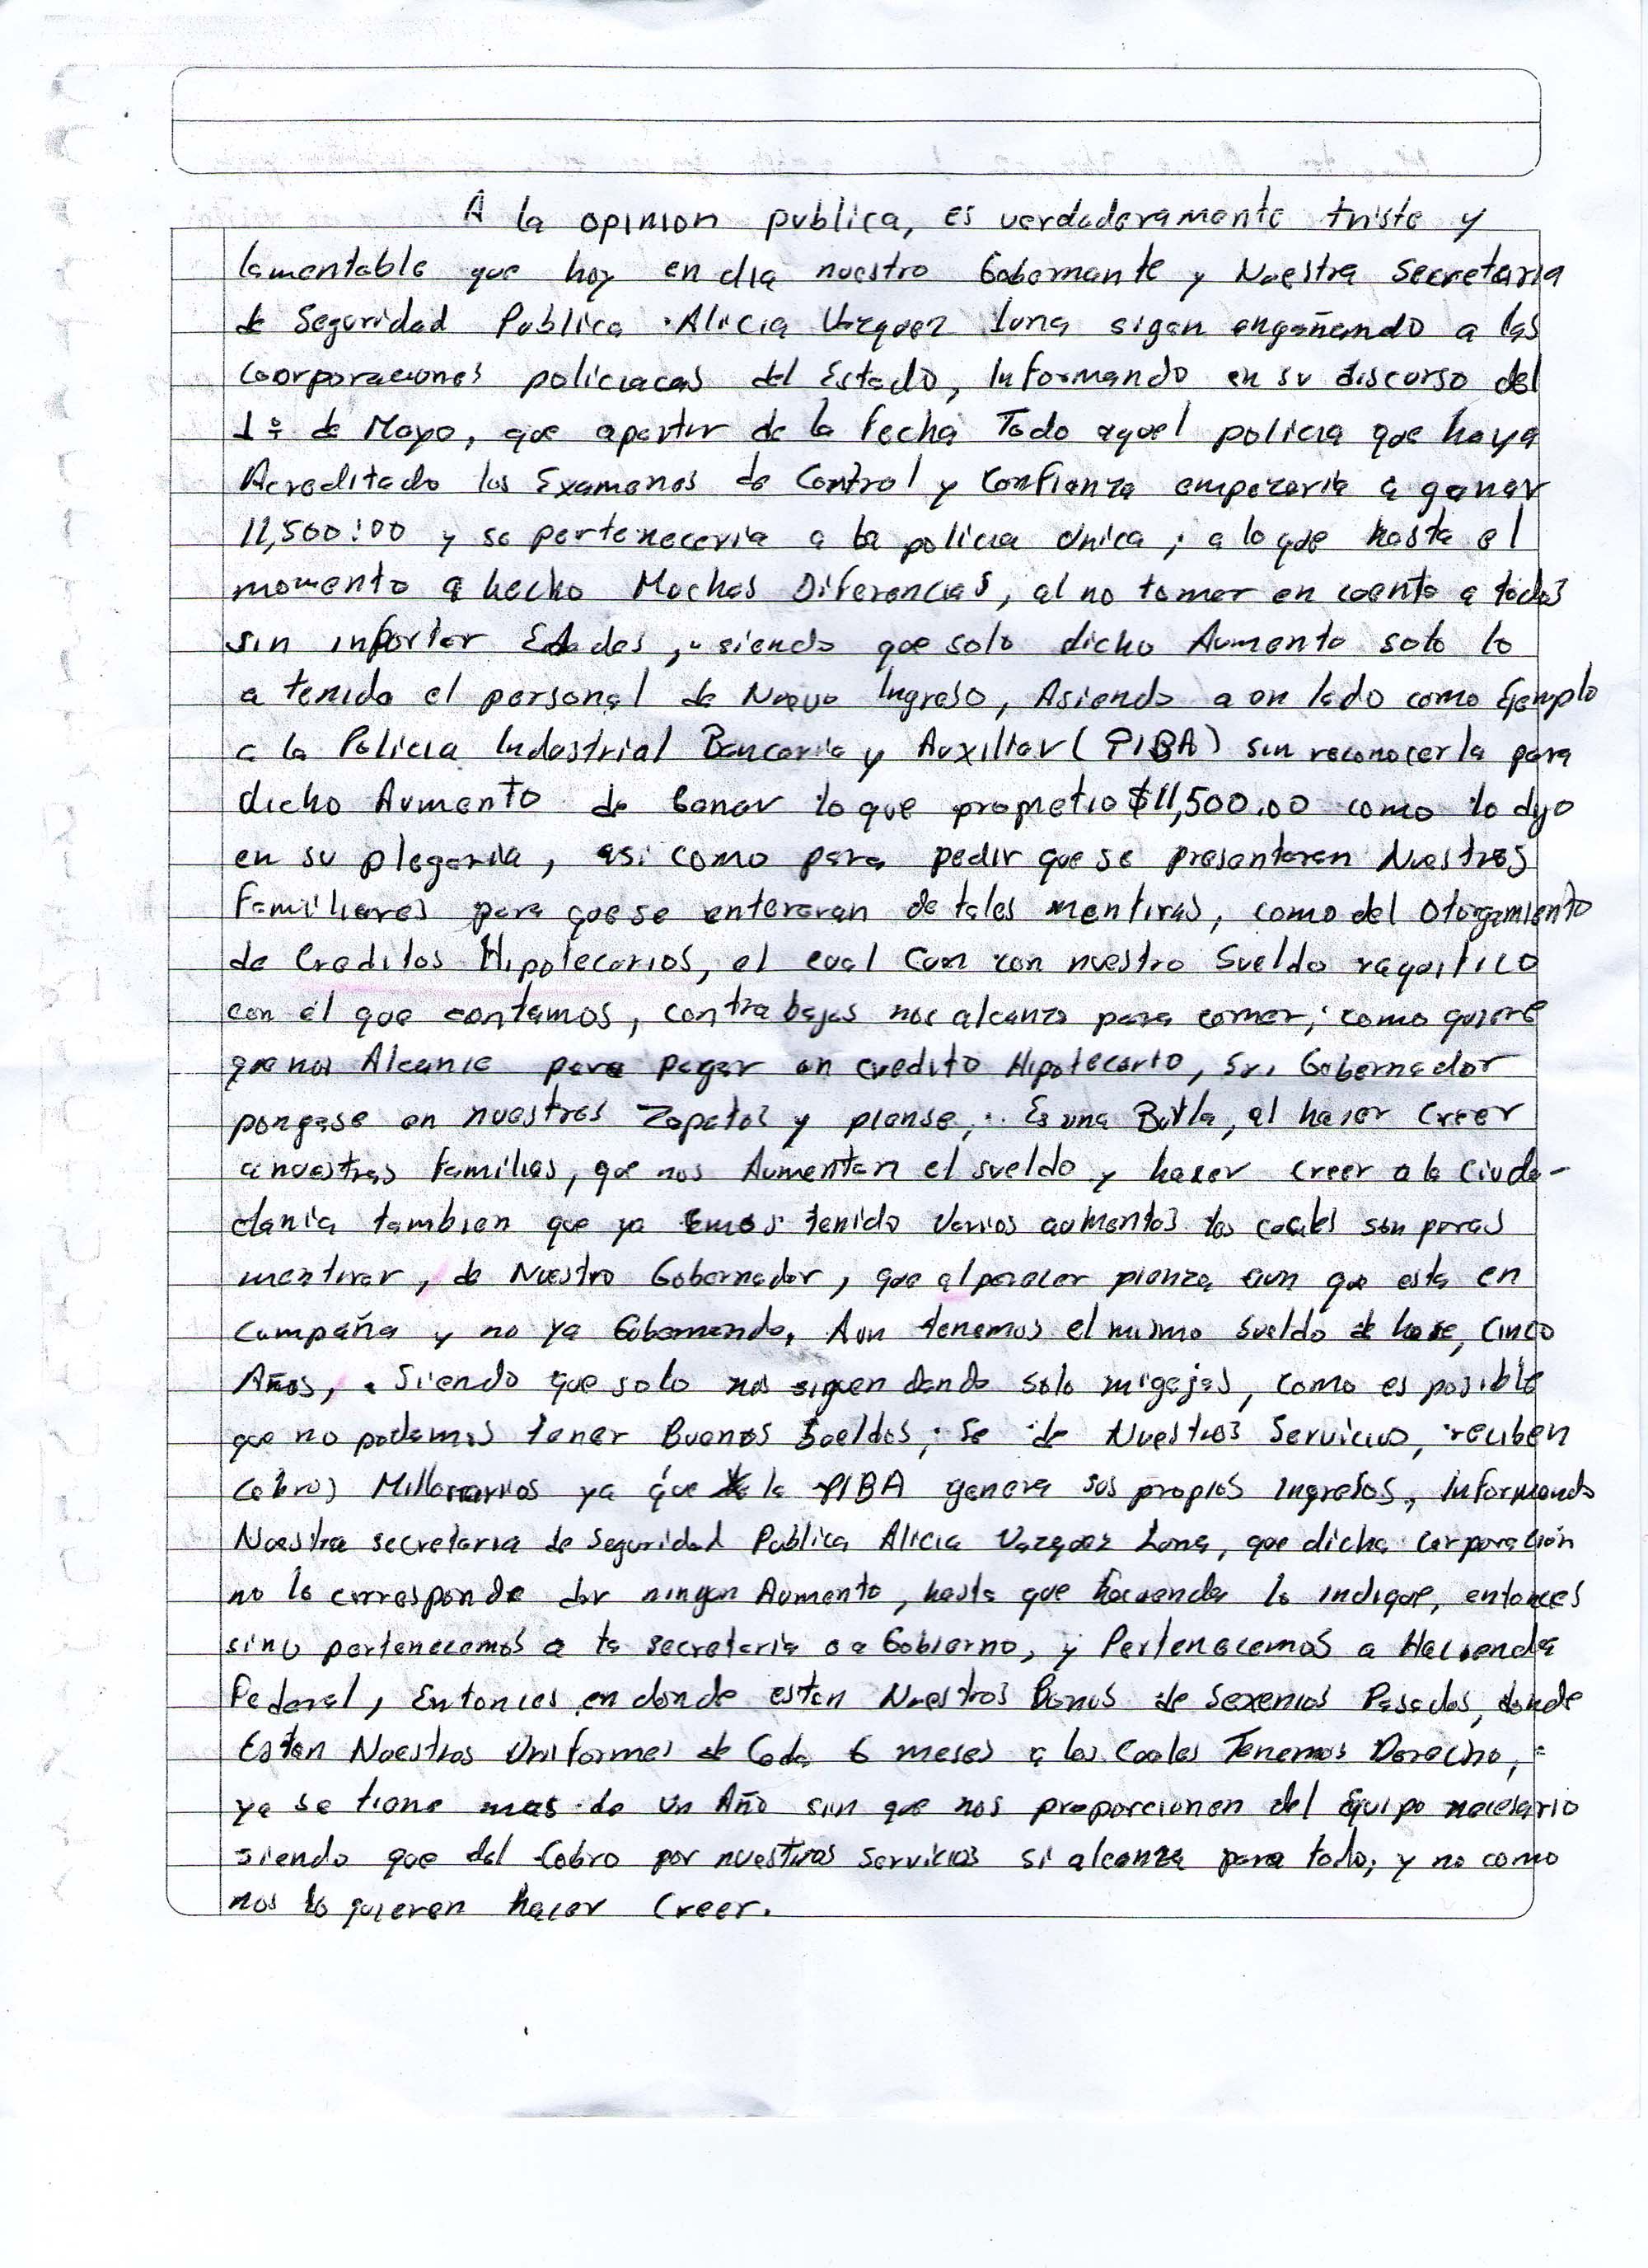 A la opinion publica, es verdaderamente triste y
lamentable que hoy en dia nuestro Gobernante y Nuestra Secretaria
de Seguridad Publica Alicia Vazquez Luna sigan engañando a las
Coorporaciones policiacas del Estado, Informando en su discurso del
1º de Mayo, que apartir de la Fecha Todo aquel policia que haya
Acreditado los Examenes de Control y Confianza empezaria a ganar
11,500:00 y se perteneceria a la policia Unica, a lo que hasta el
momento a hecho Muchas Diferencias, al no tomar en cuenta a todos
sin inportar Edades, siendo que solo dicho Aumento solo lo
a tenido el personal de Nuevo Ingreso, Asiendo a un lado como Ejemplo
a la Policia Industrial Bancaria y Auxiliar (PIBA) sin reconocerla para
dicho Aumento de Ganar lo que prometio $11,500.00 como lo dijo
en su plegaria, asi como para pedir que se presentaran Nuestros
Familiares para que se enteraran de tales mentiras, como del Otorgamiento
de Creditos Hipotecarios, el cual con nuestro Sueldo raquitico
con el que contamos, contrabajos nos alcanza para comer; como quiere
que nos Alcance para pagar un credito Hipotecario, Sr. Gobernador
pongase en nuestros Zapatos y piense, Es una Burla, al hacer Creer
a nuestras familias, que nos Aumentan el sueldo y hacer creer a la Ciuda-
dania tambien que ya emos tenido Varios aumentos los cuales son puras
mentiras, de Nuestro Gobernador, que al parecer pienza aun que esta en
Campaña y no ya Gobernando, Aun tenemos el mismo Sueldo de hase, Cinco
Años, Siendo que solo nos siguen dando solo migajas, como es posible
que no podamos tener Buenos Sueldos; Se de Nuestros Servicios, reciben
Cobros Millonarios ya que la PIBA genera sus propios Ingresos, Informando
Nuestra secretaria de Seguridad Publica Alicia Vazquez Luna, que dicha Corporación
no le corresponde dar ningun Aumento, hasta que hacienda lo indique, entonces
sino pertenecemos a la secretaria o a Gobierno, y Pertenecemos a Hacienda
Federal, Entonces en donde estan Nuestros Bonos de Sexenios Pasados, donde
Estan Nuestros Uniformes de Cada 6 meses a los Cuales Tenemos Derecho,
ya se tiene mas de un Año sin que nos proporcionen del Equipo necesario
siendo que del Cobro por nuestros Servicios si alcanza para todo; y no como
nos lo quieren hacer Creer.